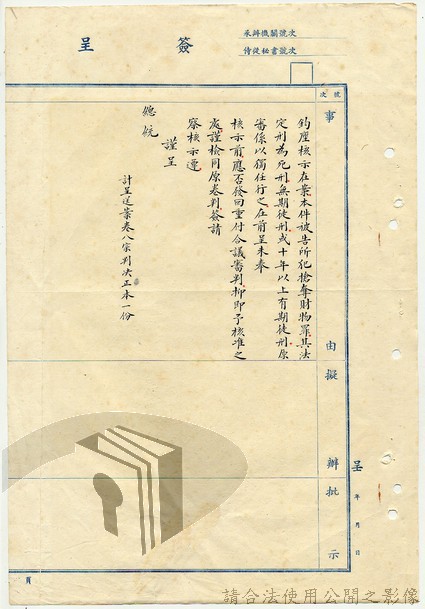 簽呈
承辦機關號次
侍從秘書號次
號次
事由
擬辦
批示
呈 年 月 日
鈞座核示在案本件被告所犯搶奪財物罪其法
定刑為死刑無期徒刑或十年以上有期徒刑原
審係以獨任行之在前呈未奉
核示前應否發回重付合議審判抑即予核准之
處謹檢同原卷判簽請
察核示遵
謹呈
總統
計呈送案卷八宗判決正本一份
頁
請合法使用公開之影像